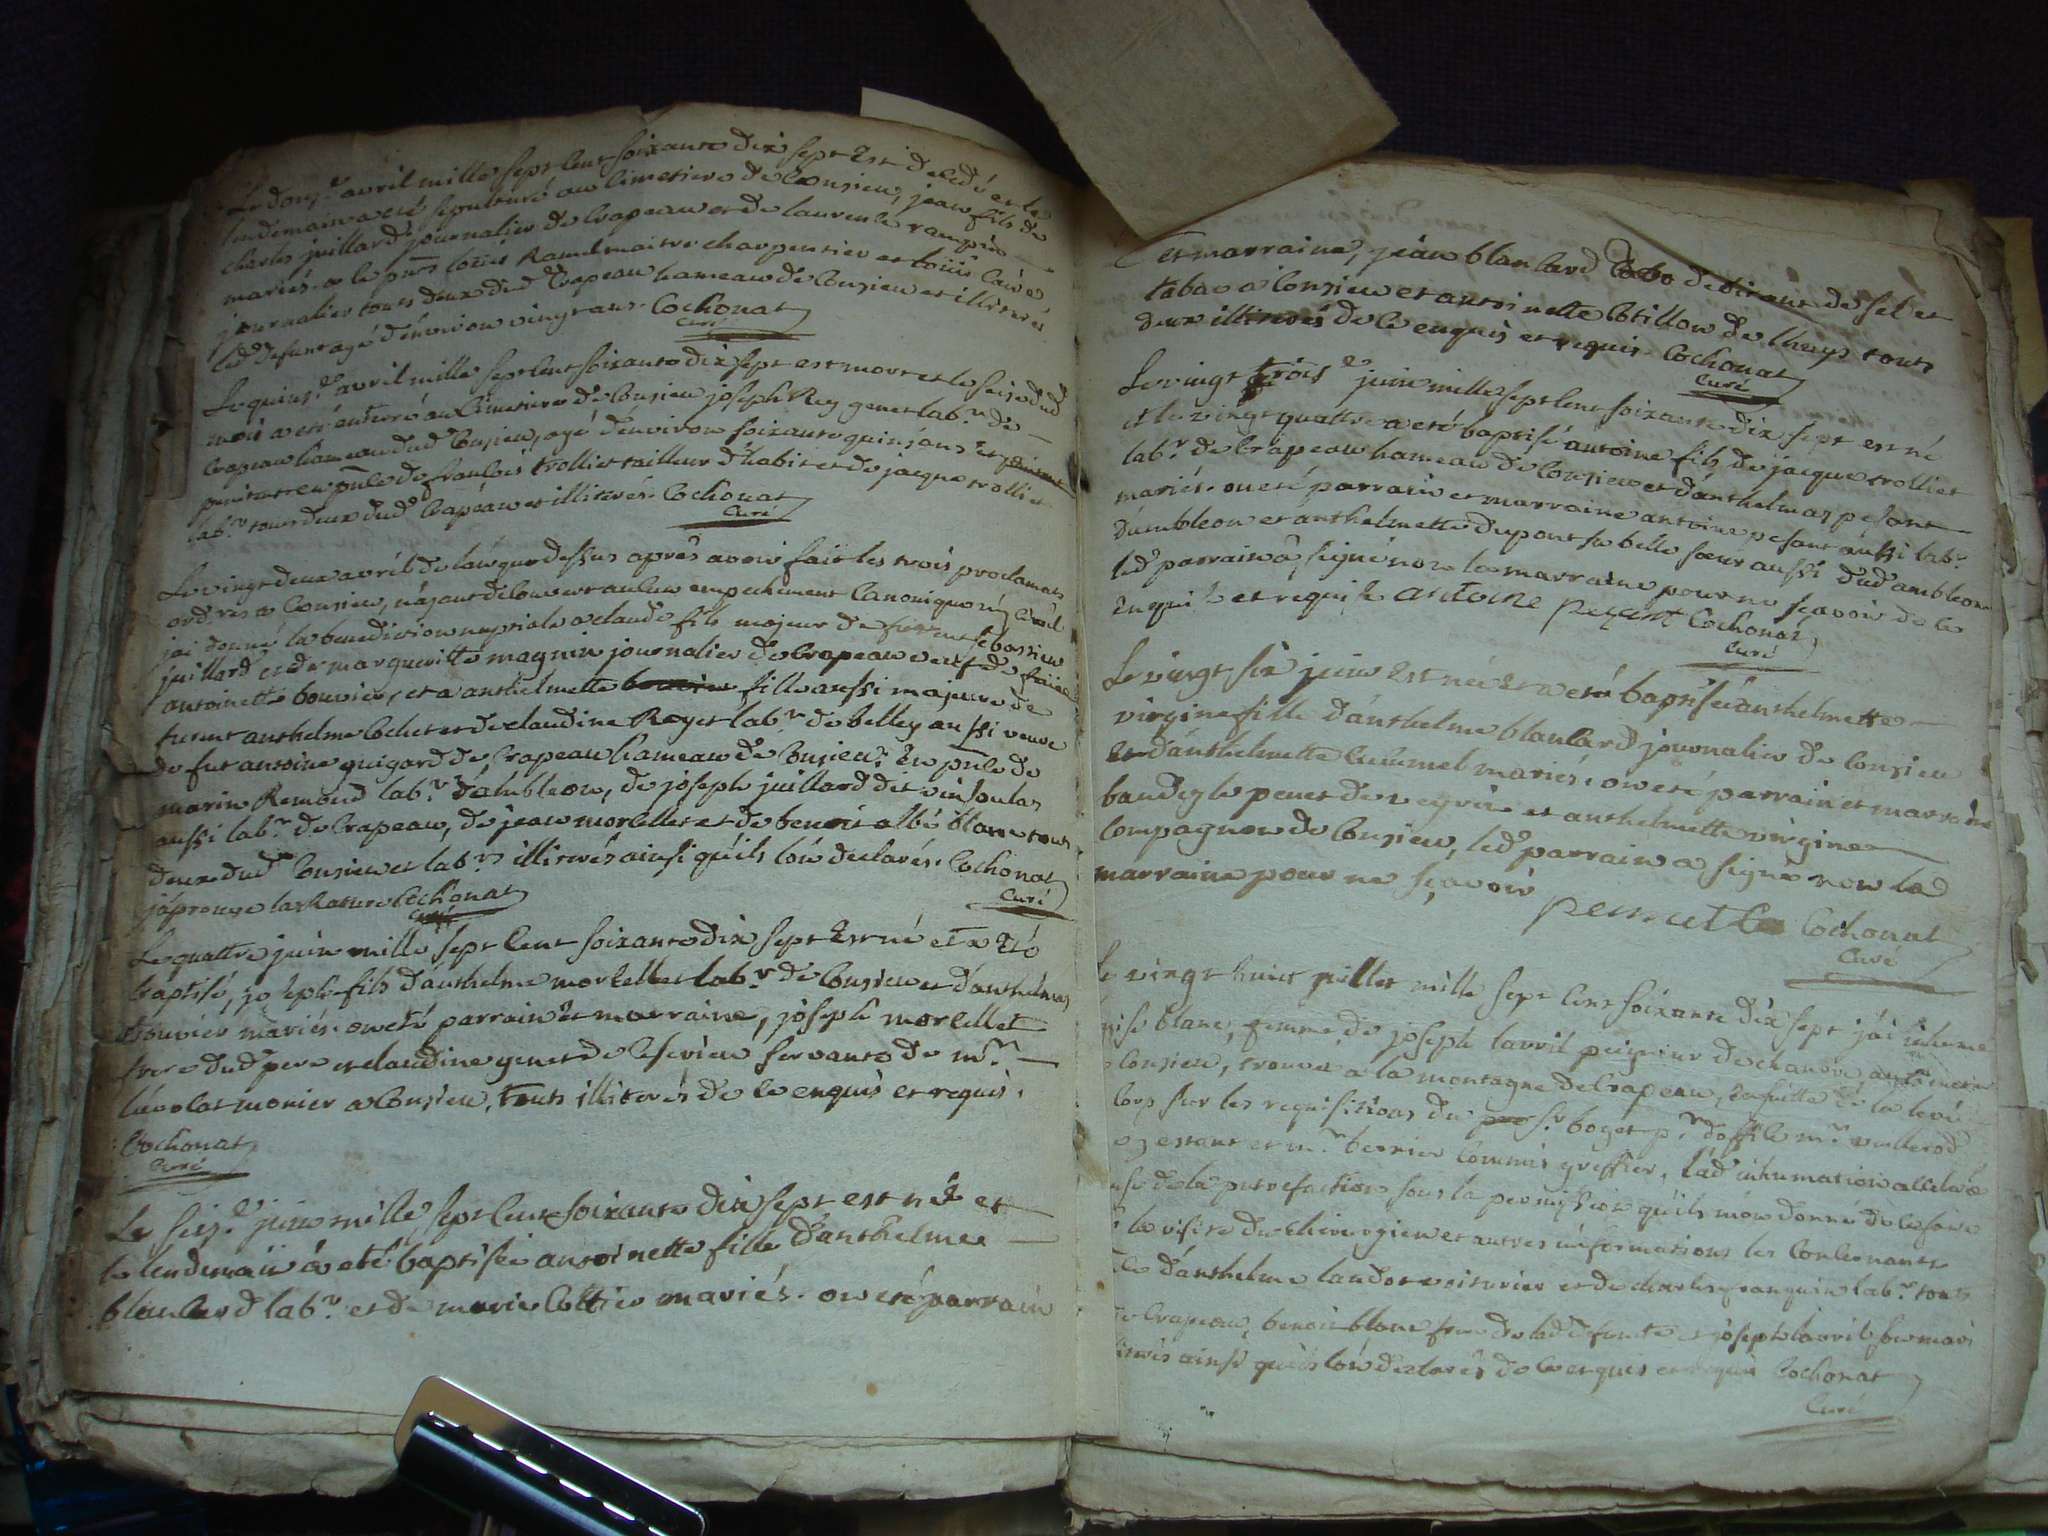 Le onz.e avril mille sept cent soixante dix sept est decedé et le
lendemain a eté sepulturé au cimetiere de Consieu, jean fils de
charles juillard journalier de Crapeau et de laurence
mariés. a le pnts loüis Ravel maitre charpentier et loüis
journalier tous deux dud Crapeau hameau de Consieu et illiterés
led defunt agé d'environ vingt ans. Cochonat
Curé
Le quinz.e avril mille sept cent soixante dix sept est mort et le seize dud
mois a eté enterré au Cimetiere de Consieu joseph Rey genet lab.r de
Crapeau hameau dud Consieu, agé d'environ soixante quinz ans et
en pnce de francois trolliet tailleur d'habit et de jacque trolliet
lab.r tous deux dud Crapeau et illiterés. Cochonat
Curé
Le vingt deux avril de l'an que dessus aprés avoir fait les trois proclamats
ord.res a Consieu, n'ajant decouvert aucun empechement canonique ny Civil
jai donné la benediction nuptiale a claude fils majeur de furent sebastien
juillard et de margueritte magnin journalier de Crapeau veuf de
antoinette bouvier, et a anthelmette fille aussi majeure de
furent anthelme Cochet et de claudine Roget lab.r de belley aussi veuve
de fut antoine guigard de Crapeau hameau de Consieu. En pnce de
marin Remond lab.r d'ambleon, de joseph juillard dit vinsoulas
aussi lab.r de Crapeau, de jean morellet et de benoit albé blanc tous
deux dud Consieu et lab.rs illiterés ainsi qu'ils l'on declarés. Cochonat
j'aprouve la Rature Cochonat Curé
Curé
Le quattre juin mille sept cent soixante dix sept est né et a eté
baptisé, joseph fils d'anthelme morellet lab.r de Consieu et d'anthelmaz
bouvier mariés. on eté parrain et marraine, joseph morellet
frere dud pere et claudine genet de servante de m.r
monier a Consieu, touts illiterés de ce enquis et requis.
Cochonat
Curé
Le seiz.e juin mille sept cent soixante dix sept est née et
le lendemain a eté baptisée antoinette fille d'anthelme
blanlard lab.r et de marie Cottier mariés. on eté parrain
et marraine, jean blanlard de sel et
tabac a Consieu et antoinette Cotillon de lhuys touts
deux illiterés de ce enquis et requis. Cochonat
Curé
Le vingt trois.e juin mille sept cent soixante dix sept est né
et le vingt quattre a eté baptisé antoine fils de jacque trolliet
lab.r de Crapeau hameau de Consieu et d'anthelmaz pesant
mariés. on eté parrain et marraine antoine pesant aussi lab.r
d'ambleon et anthelmette dupont sa belle soeur aussi dud ambleon
led parrain a signé non la marraine pour ne sçavoir de ce
enquise et requise antoine Cochonat
Curé
Le vingt six juin est née et a eté baptisée anthelmette
virgine fille d'anthelme blanlard journalier de Consieu
et d'anthelmette mariés. on eté parrain et marraine
pernet de et anthelmette virgine
Compagnon de Consieu, led parrain a signé non lad
marraine pour ne sçavoir Cochonat
Curé
Le vingt huit juillet mille sept cent soixante dix sept j'ai inhumé
blanc, femme de joseph lavril peigneur de chanvre, au cimetiere
Consieu, trouvée a la montagne de Crapeau, ensuitte de la levée
corps sur les requisitions du s.r boget p.r d'off.ce m.r
et m.r bernier commis greffier. lad inhumation accelerée
de la putrefaction sous la permission qu'ils m'on donné de ce faire
la visite du chirurgien et autres informations les concernants
d'anthelme landot voiturier et de charles franquin lab.r touts
de Crapeau, benoit blanc frere de lad defunte et joseph lavril son mari
illiterés ainsi qu'ils l'on declarés de ce enquis et requis Cochonat
Curé